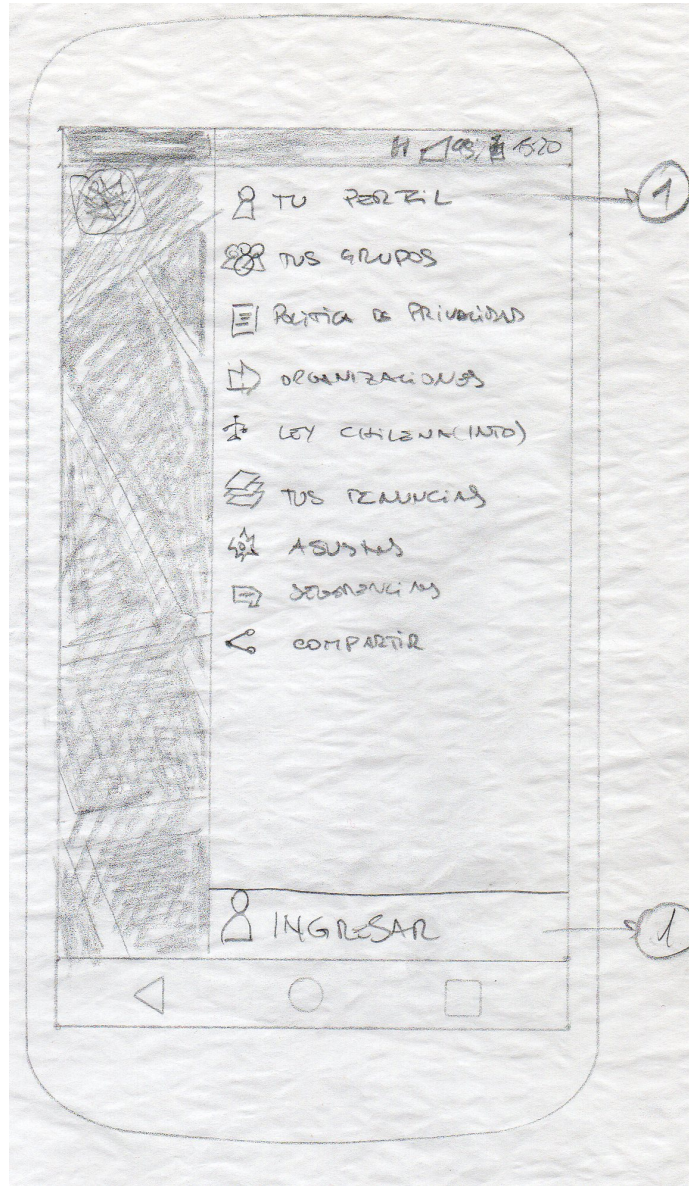 H 98% 15:20
TU PERFIL
1
TUS GRUPOS
POLITICA DE PRIVACIDAD
ORGANIZACIONES
LEY CHILENA (INTO)
TUS DENUNCIAS
AJUSTES
SUGERENCIAS
COMPARTIR
INGRESAR
1